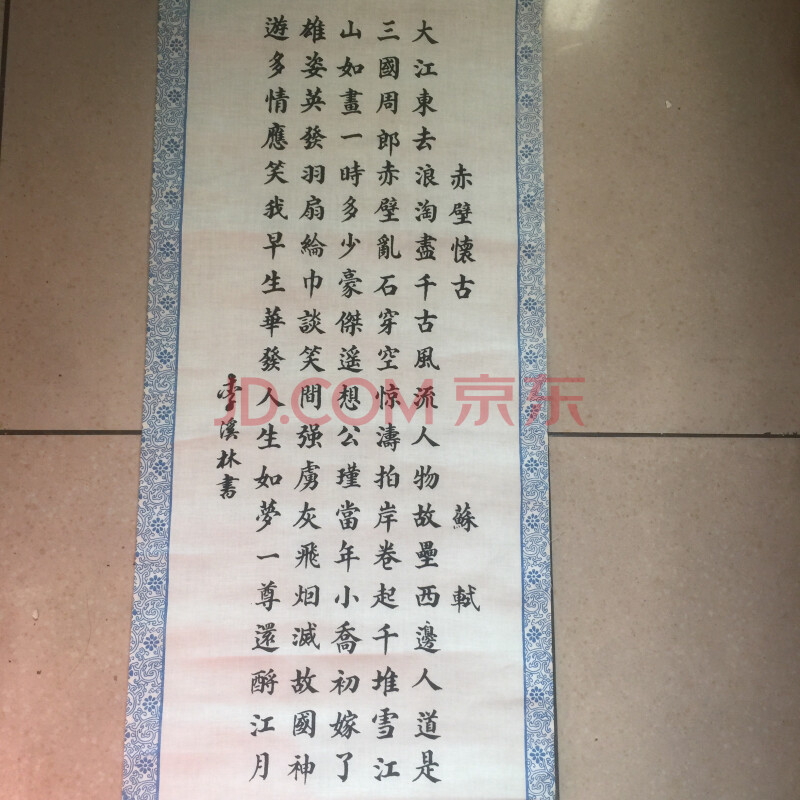 赤壁懷古 蘇軾
大江東去浪淘盡千古風流人物故壘西邊人道是
三國周郎赤壁亂石穿空惊濤拍岸卷起千堆雪江
山如畫一時多少豪傑遥想公瑾當年小喬初嫁了
雄姿英發羽扇綸巾談笑間强虜灰飛烟滅故國神
遊多情應笑我早生華發人生如夢一尊還酹江月
李溪林書
JD.COM 京东